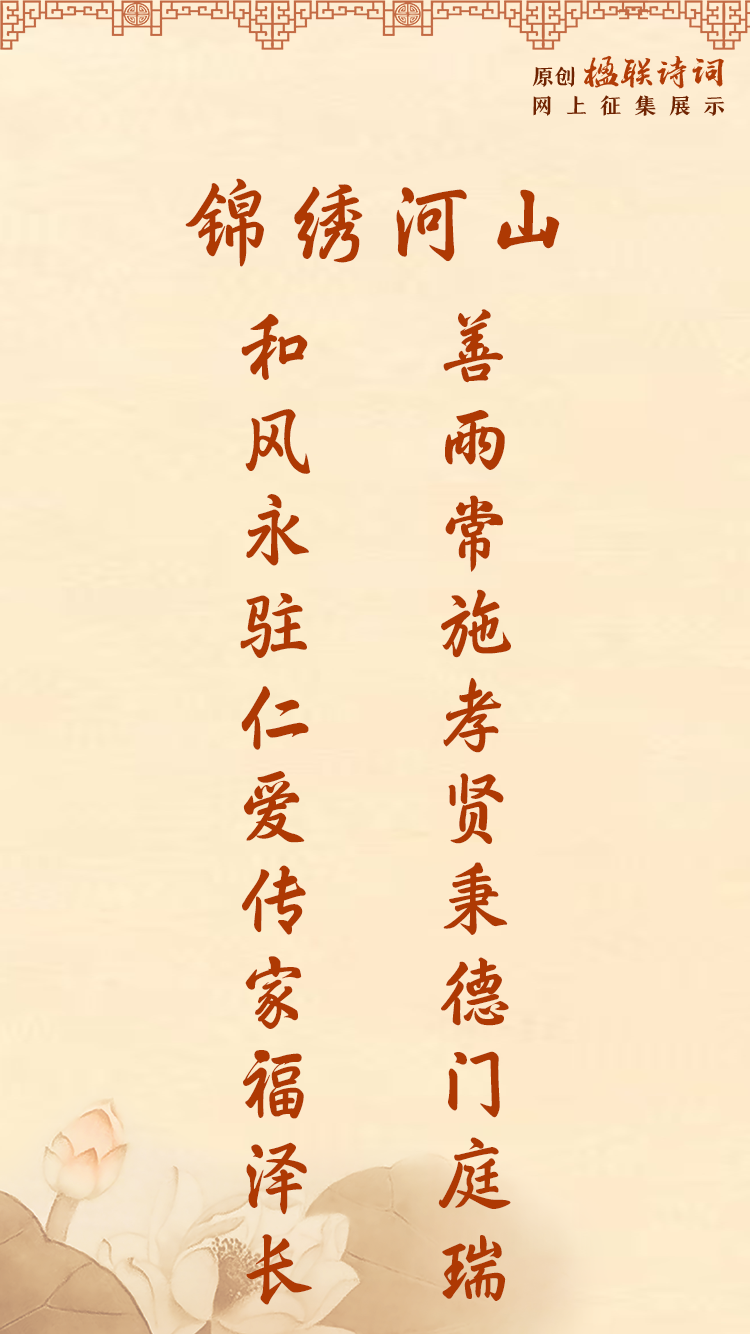 原创 楹联诗词
网上征集展示
锦绣河山
善雨常施孝贤秉德门庭瑞
和风永驻仁爱传家福泽长